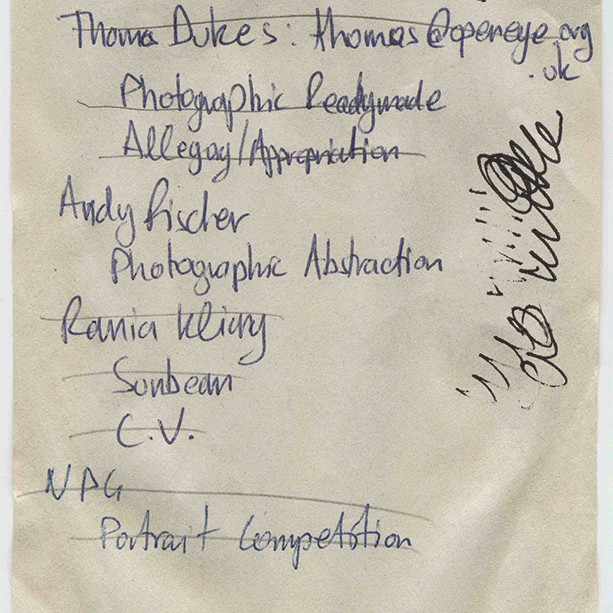 Thomas Dukes: thomas@openeye.org
.uk
Photographic Readymade
Allegoy/Appropriation
Andy Fischer
Photographic Abstraction
Rania
Sunbeam
C.V.
NPG
Portrait Competition